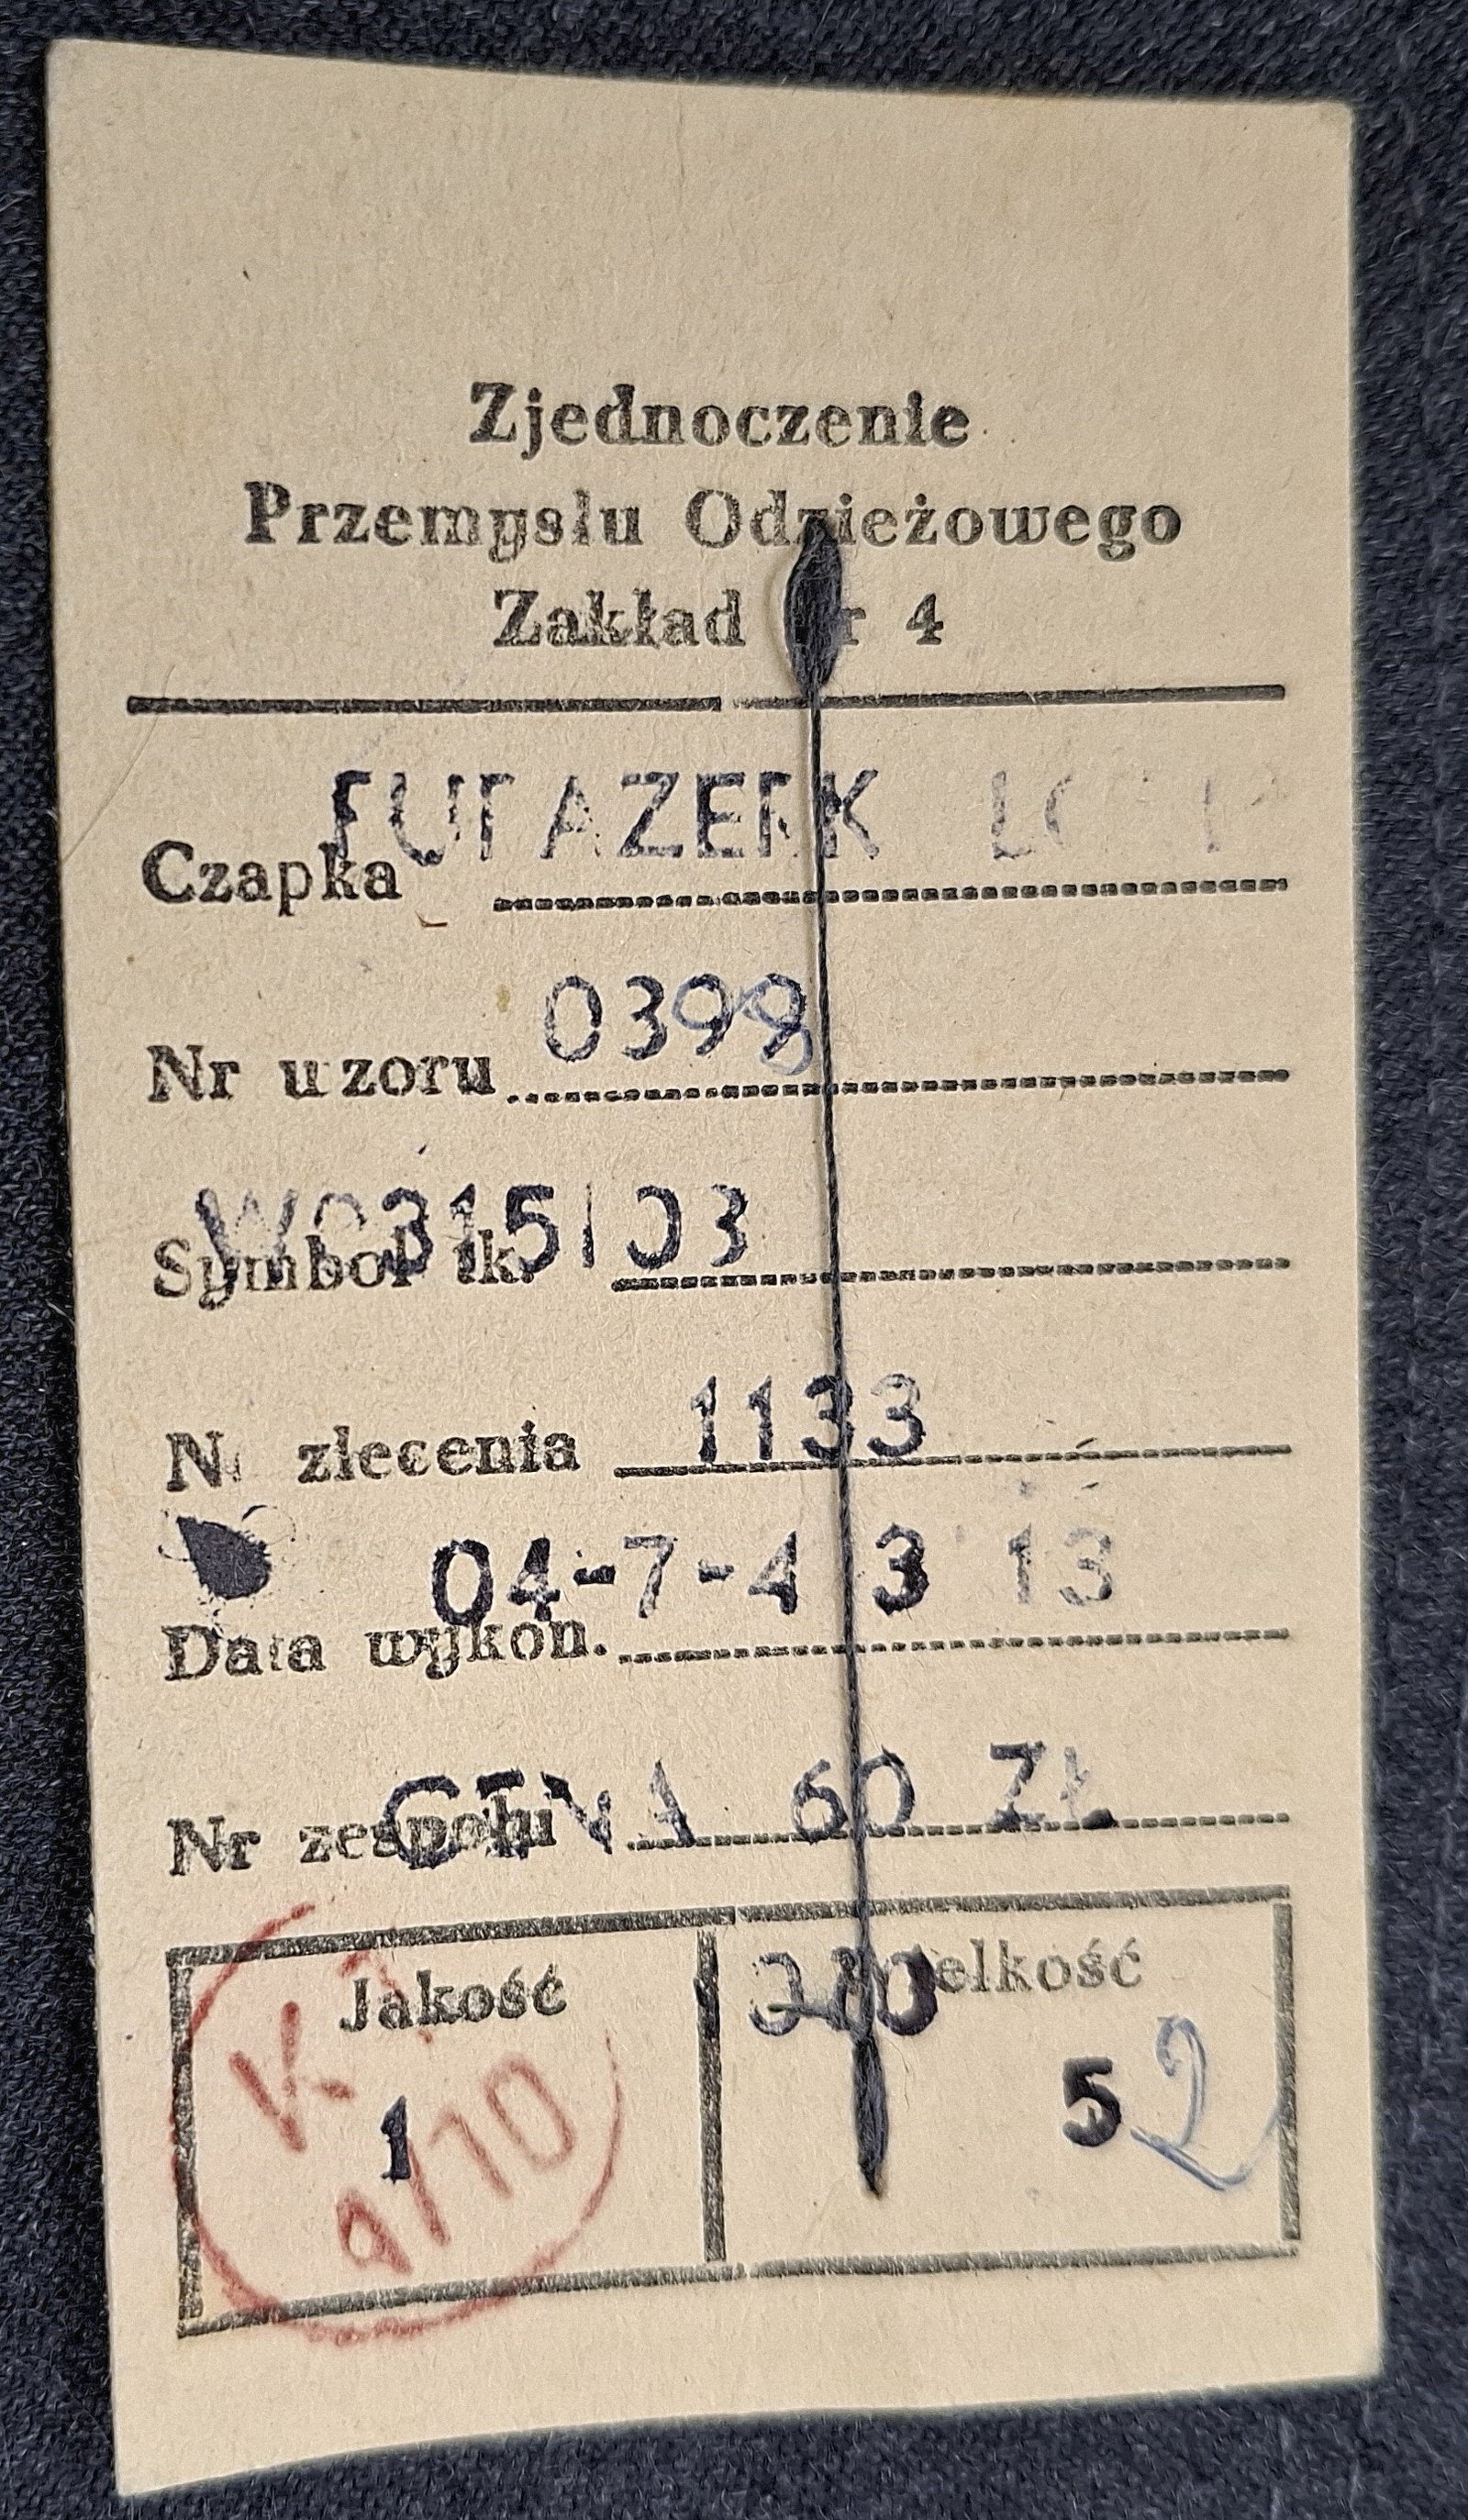 Zjednoczenie
Przemysłu Odzieżowego
Zakład Nr 4
Czapka FURAZERK
Nr wzoru 0398
Symbol tk. WC315103
Nr zlecenia 1133
04-7-4 3 13
Data wykon.
Nr zespołu CENA 60 ZŁ
Jakość
Wielkość
KJ
1
9/10
52